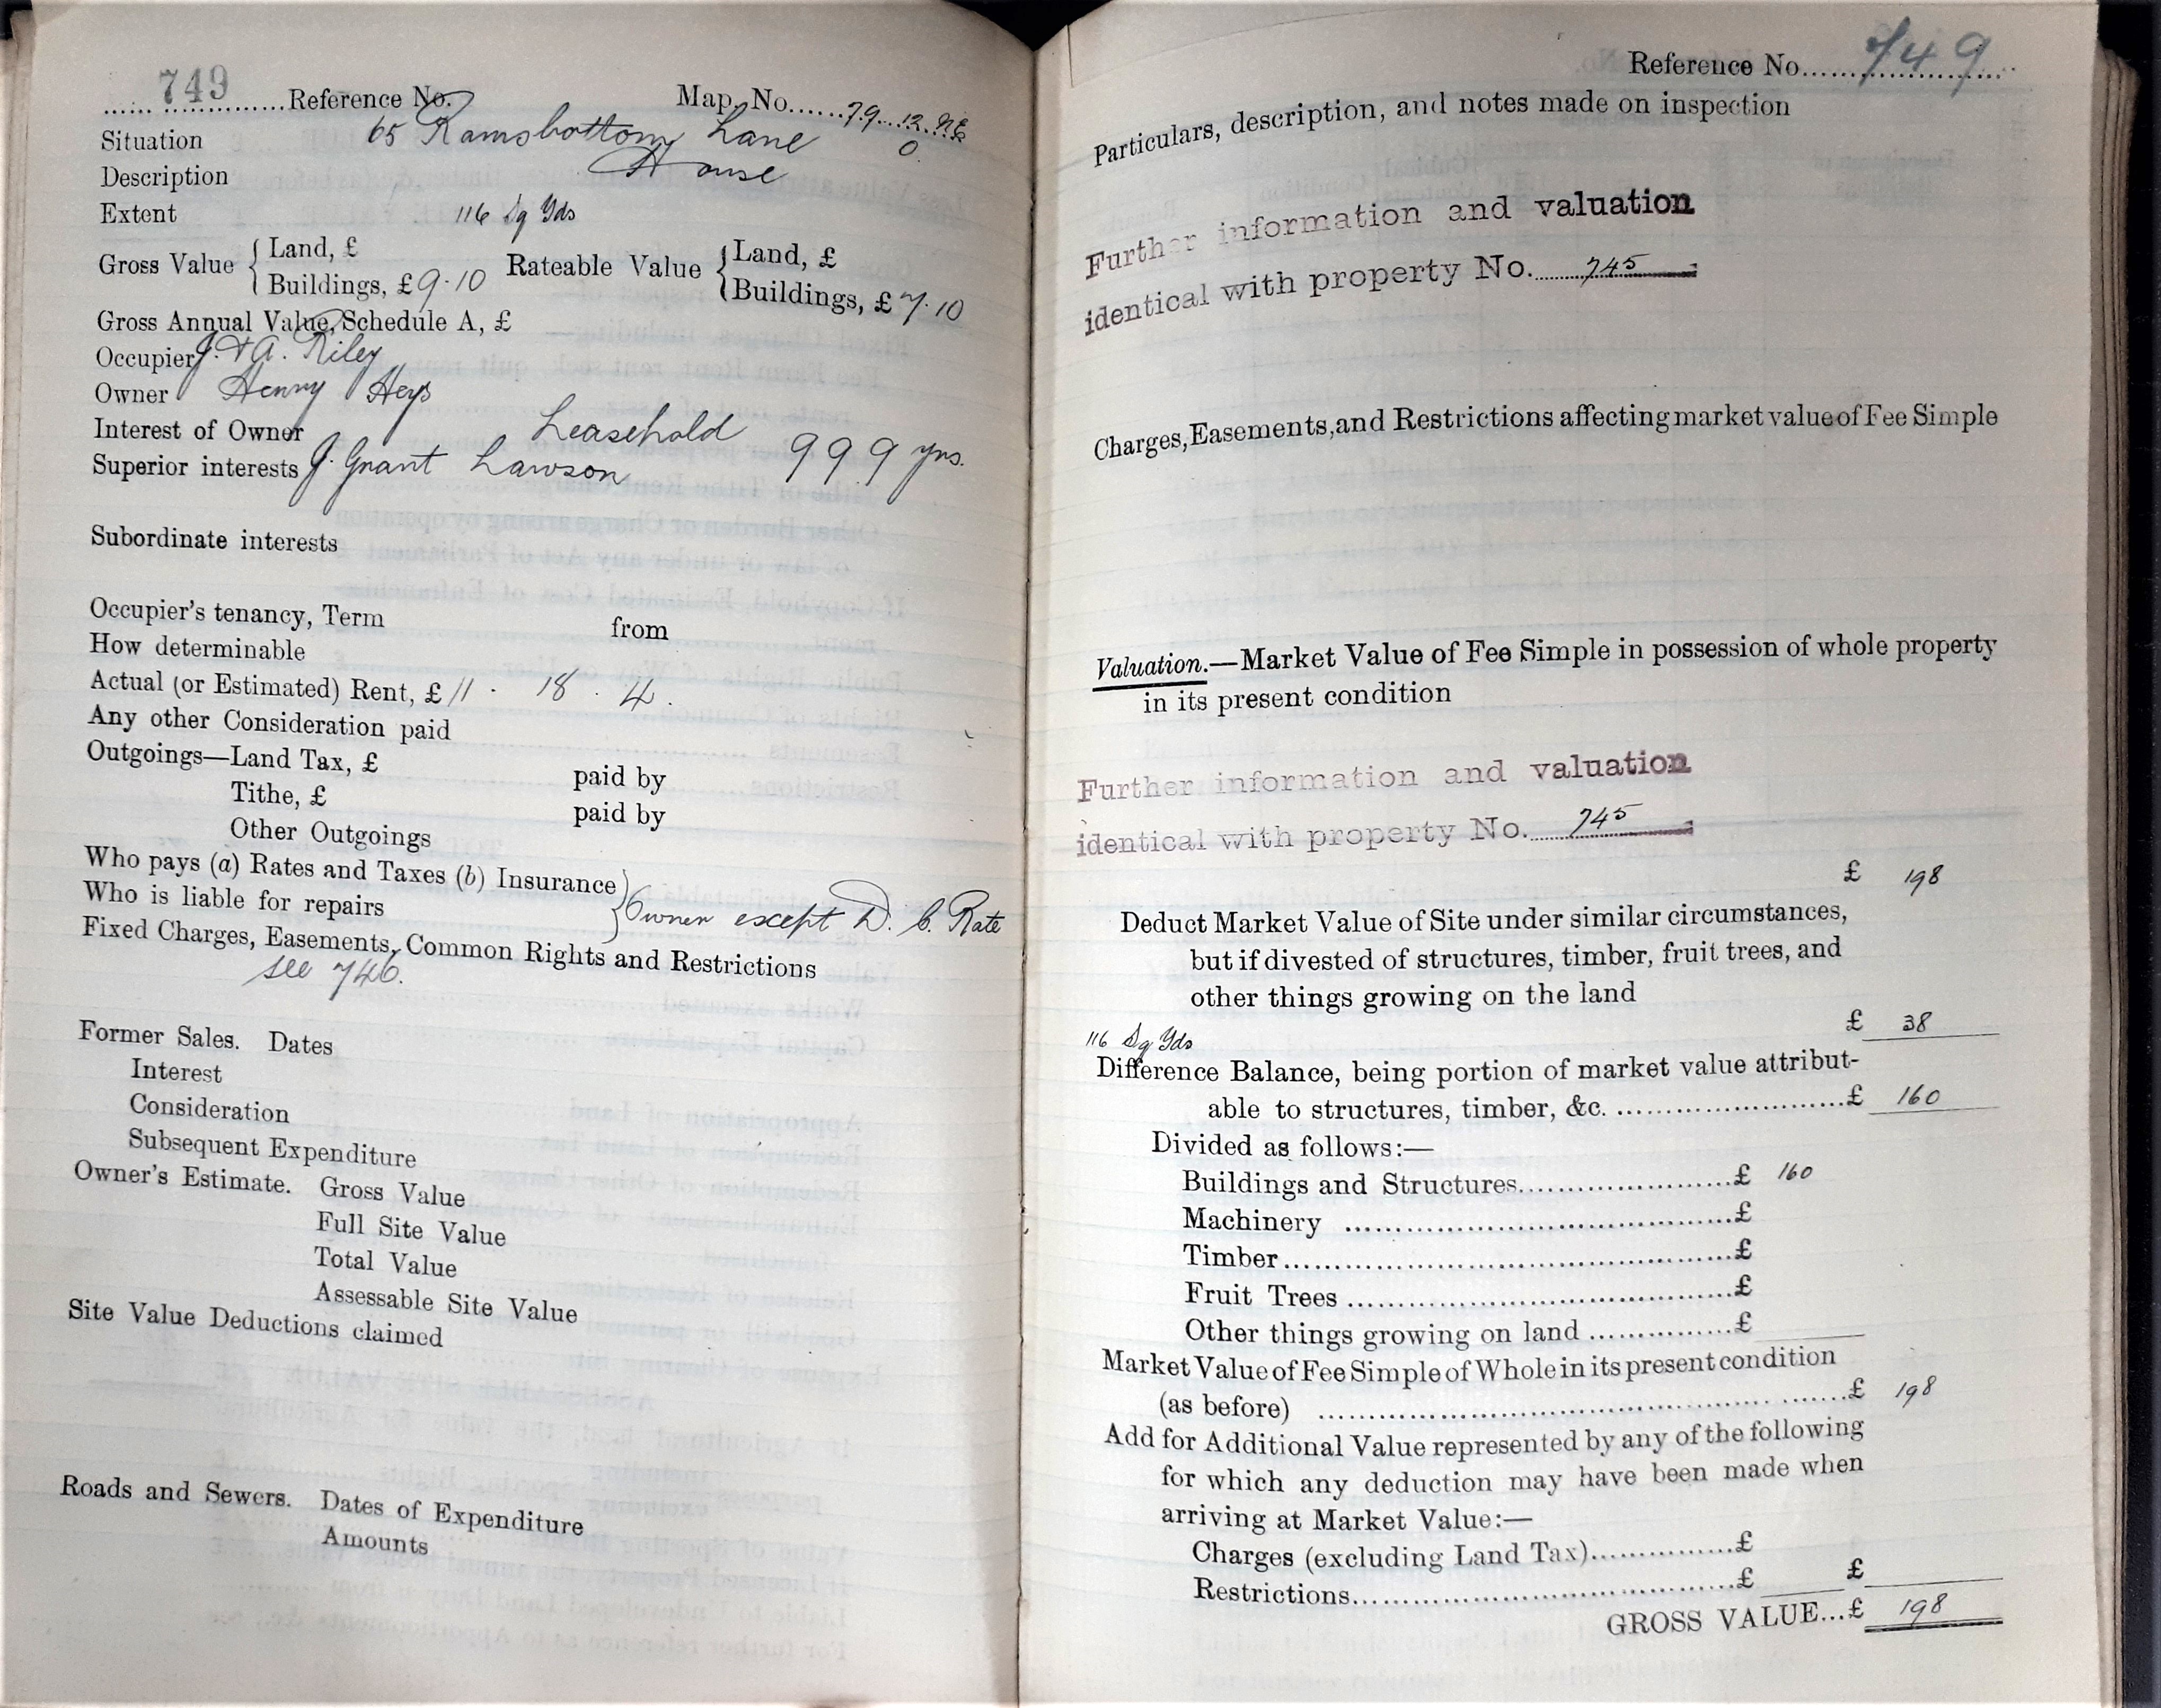 749 Reference No. Map. No. 79. 12. NE
0
Situation 65 Ramsbottom Lane
Description House
Extent 116 Sq Yds
Gross Value { Land, £ Rateable Value { Land, £
Buildings, £ 9.10 Buildings, £ 7.10
Gross Annual Value, Schedule A, £
Occupier J. & A. Riley
Owner Henry Heys
Interest of Owner Leasehold 999 yrs.
Superior interests J. Grant Lawson
Subordinate interests
Occupier's tenancy, Term from
How determinable
Actual (or Estimated) Rent, £ 11 . 18 . 4.
Any other Consideration paid
Outgoings—Land Tax, £ paid by
Tithe, £ paid by
Other Outgoings
Who pays (a) Rates and Taxes (b) Insurance }
Who is liable for repairs } Owner except D. C. Rate
Fixed Charges, Easements, Common Rights and Restrictions
see 746.
Former Sales. Dates
Interest
Consideration
Subsequent Expenditure
Owner's Estimate. Gross Value
Full Site Value
Total Value
Assessable Site Value
Site Value Deductions claimed
Roads and Sewers. Dates of Expenditure
Amounts
Reference No. 749
Particulars, description, and notes made on inspection
Further information and valuation
identical with property No. 745
Charges, Easements, and Restrictions affecting market value of Fee Simple
Valuation.—Market Value of Fee Simple in possession of whole property
in its present condition
Further information and valuation
identical with property No. 745
£ 198
Deduct Market Value of Site under similar circumstances,
but if divested of structures, timber, fruit trees, and
other things growing on the land
£ 38
116 Sq Yds
Difference Balance, being portion of market value attribut-
able to structures, timber, &c. £ 160
Divided as follows:—
Buildings and Structures £ 160
Machinery £
Timber £
Fruit Trees £
Other things growing on land £
Market Value of Fee Simple of Whole in its present condition
(as before) £ 198
Add for Additional Value represented by any of the following
for which any deduction may have been made when
arriving at Market Value:—
Charges (excluding Land Tax) £
Restrictions £ £
GROSS VALUE...£ 198